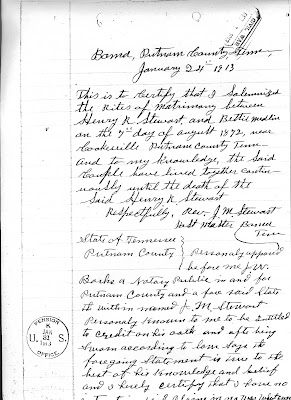 Boma, Putnam County Tenn,
January 24th 1913
This is to certify that I Solemnized
the Rites of Matrimony between
Henry R. Stewart and Bettie
on the 7th day of august 1872, near
Cookeville Putnam County Tenn
And to my Knowledge, the Said
Couple have lived together contin
uously until the death of the
Said Henry R Stewart
Respectfully, Rev. J. M. Stewart
Post Master
Tenn
State of Tennessee
Putnam County
Personaly appeared
before me J. W.
a Notary Publice in and for
Putnam County and a fore said State
the within named J. M. Stewart
Personaly Known to me to be Entitled
to credit on his oath and after being
Sworn according to Law Says the
foregoing Statement is true to the
best of his Knowledge and belief
and I hereby certify that I have no
PENSION
JAN
1913
U. S.
OFFICE